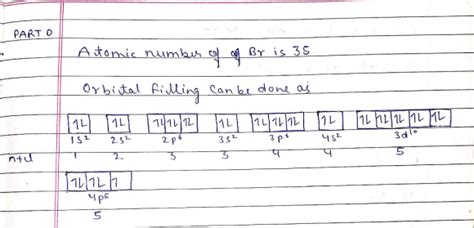 PART D
Atomic number of of Br is 35
Orbital filling can be done as
1L 1L 1L1L1L 1L 1L1L1L 1L 1L 1L 1L 1L 1L
1s² 2s² 2p⁶ 3s² 3p⁶ 4s² 3d¹⁰
n+l 1 2 3 3 4 4 5
1L 1L 1
4p⁵
5